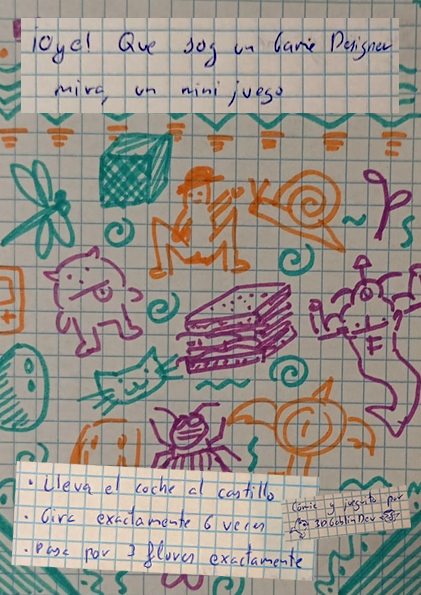 ¡Oye! Que soy un Game Designer
mira, un mini juego
· Lleva el coche al castillo
· Gira exactamente 6 veces
· Pasa por 3 flores exactamente
Comic y jueguito por
3DGoblinDev